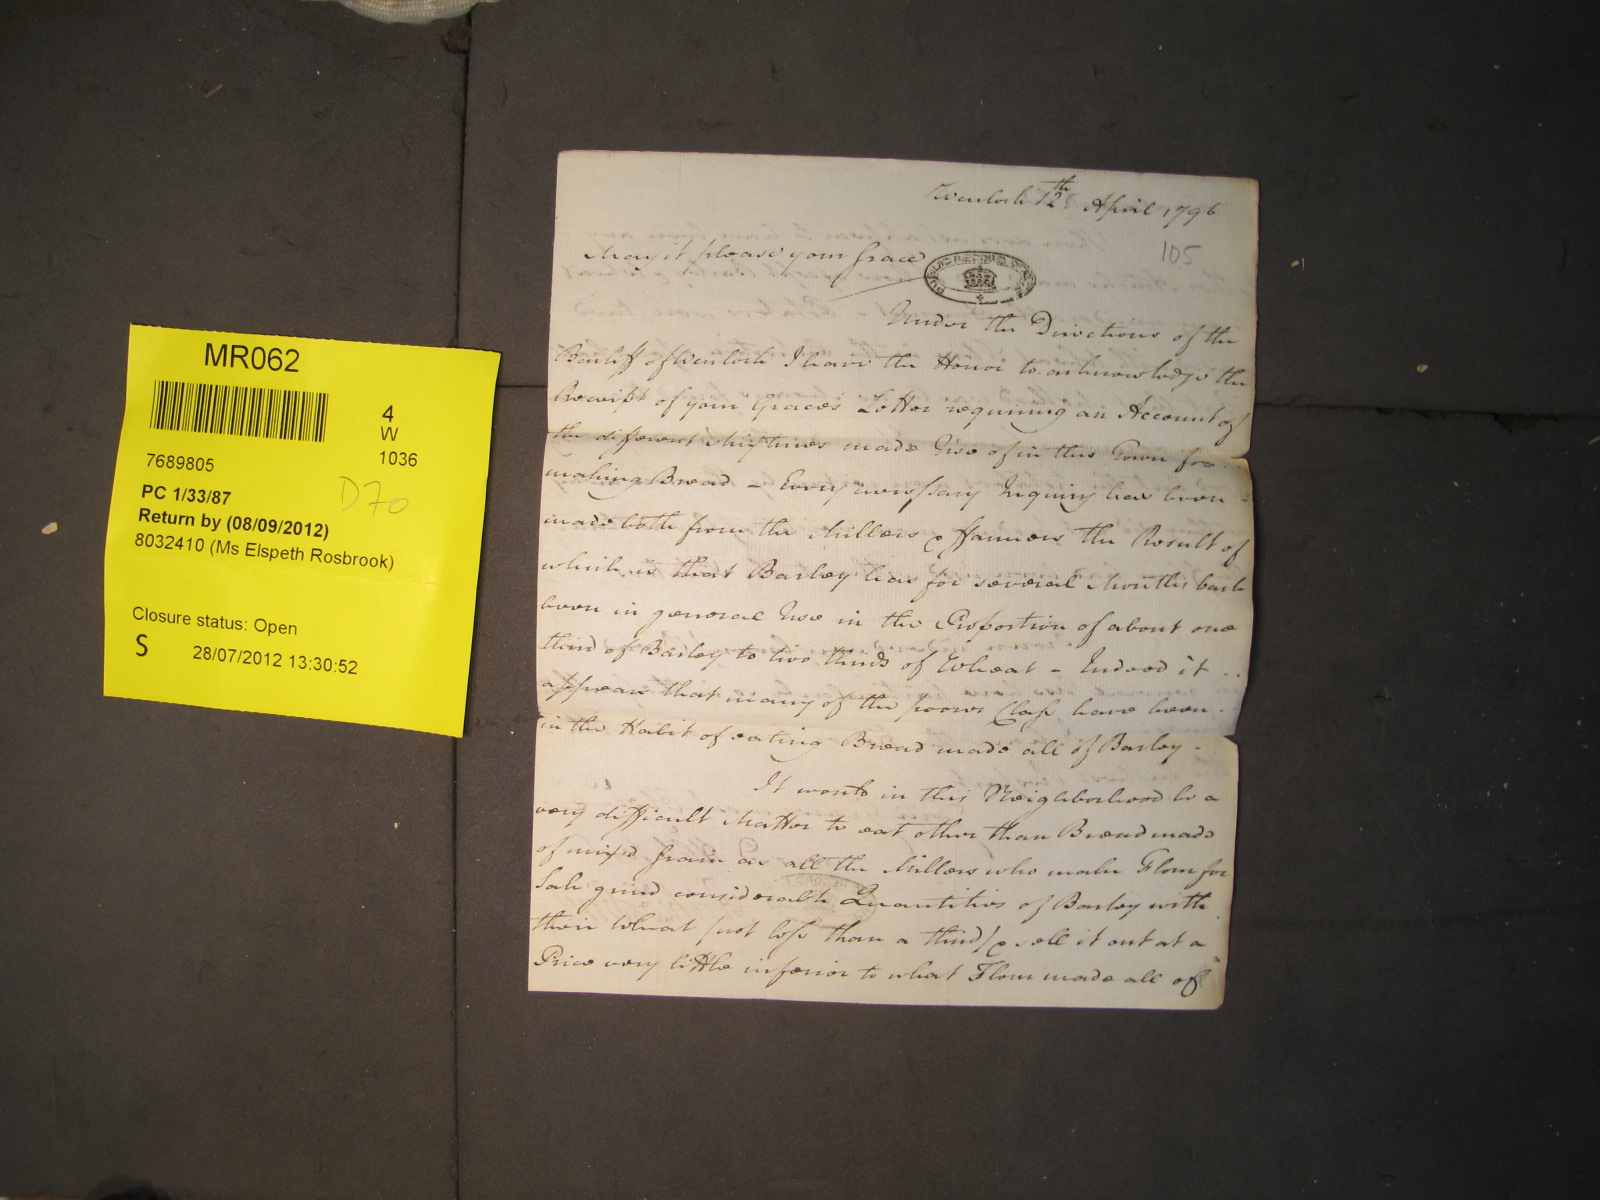 MR062
4
W
1036
7689805
PC 1/33/87
D70
Return by (08/09/2012)
8032410 (Ms Elspeth Rosbrook)
Closure status: Open
S 28/07/2012 13:30:52
Wenlock 12th April 1796
105
May it please your Grace
PUBLIC RECORD OFFICE
Under the Directions of the
Bailiff of Wenlock I have the Honor to acknowledge the
Receipt of your Graces Letter requiring an Account of
the different Mixtures made Use of in this Town for
making Bread – Every necessary Inquiry has been
made both from the Millers & ffarmers the Result of
which is that Barley has for several Months back
been in general Use in the Proportion of about one
third of Barley to two thirds of Wheat – Indeed it
appears that many of the poorer Class have been
in the Habit of eating Bread made all of Barley –
It would in this Neighborhood be a
very difficult Matter to eat other than Bread made
of mixed Grain as all the Millers who make Flour for
Sale grind considerable Quantities of Barley with
their Wheat (not less than a third) & sell it out at a
Price very little inferior to what Flour made all of